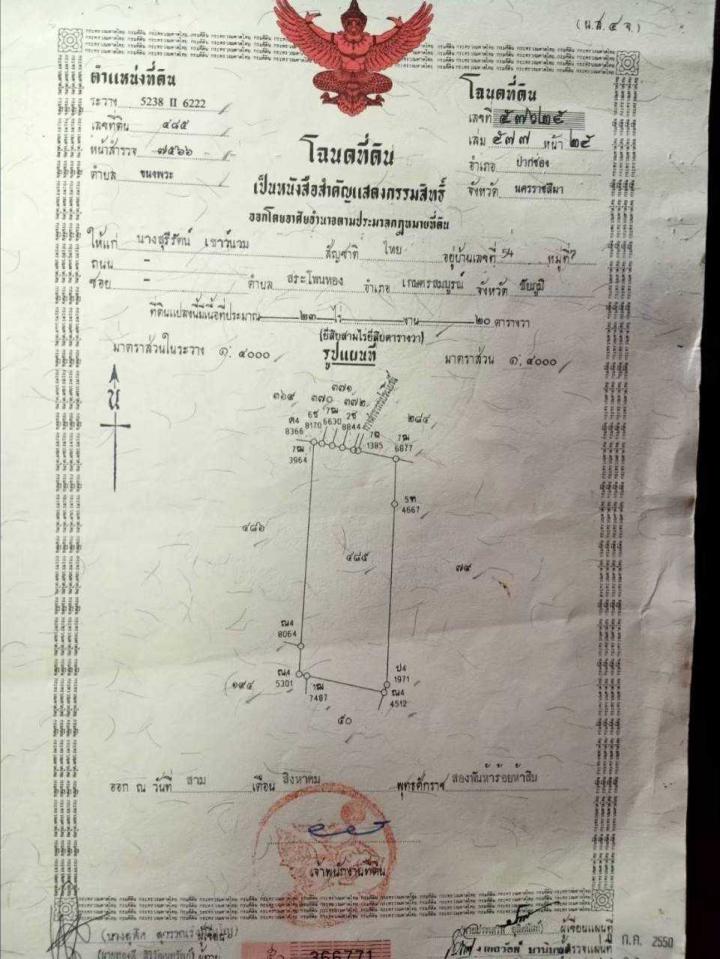 (น.ส.๔ จ.)
ตำแหน่งที่ดิน
ระวาง 5238 II 6222
เลขที่ดิน ๔๘๕
หน้าสำรวจ ๗๕๖๖
ตำบล ขนงพระ
โฉนดที่ดิน
เลขที่ ๕๗๖๒๕
เล่ม ๕๗๗ หน้า ๒๕
อำเภอ ปากช่อง
จังหวัด นครราชสีมา
โฉนดที่ดิน
เป็นหนังสือสำคัญแสดงกรรมสิทธิ์
ออกโดยอาศัยอำนาจตามประมวลกฎหมายที่ดิน
ให้แก่ นางสุรีรัตน์ เชาว์นวม สัญชาติ ไทย อยู่บ้านเลขที่ 54 หมู่ที่ 7
ถนน -
ซอย - ตำบล สระโพนทอง อำเภอ เกษตรสมบูรณ์ จังหวัด ชัยภูมิ
ที่ดินแปลงนี้มีเนื้อที่ประมาณ ๒๓ ไร่ - งาน ๒๐ ตารางวา
(ยี่สิบสามไร่ยี่สิบตารางวา)
มาตราส่วนในระวาง ๑:๔๐๐๐ รูปแผนที่ มาตราส่วน ๑:๔๐๐๐
น
๓๖๙ ๓๗๐ ๓๗๑ ๓๗๒
๒๘๔
ค4 8366
6ช 8170
7ฒ 6630
2ช 8844
7ถ 1385
7ฒ 6877
7ฒ 3964
5ท 4667
๔๘๖
๔๘๕
๗๔
ณ4 8064
ณ4 5301
1ฒ 7487
ป4 1971
ณ4 4512
๑๙๔
๕๐
ออก ณ วันที่ สาม เดือน สิงหาคม พุทธศักราช สองพันห้าร้อยห้าสิบ
เจ้าพนักงานที่ดิน
ผู้เขียนแผนที่
ผู้ตรวจแผนที่
ก.ค. 2550
366771